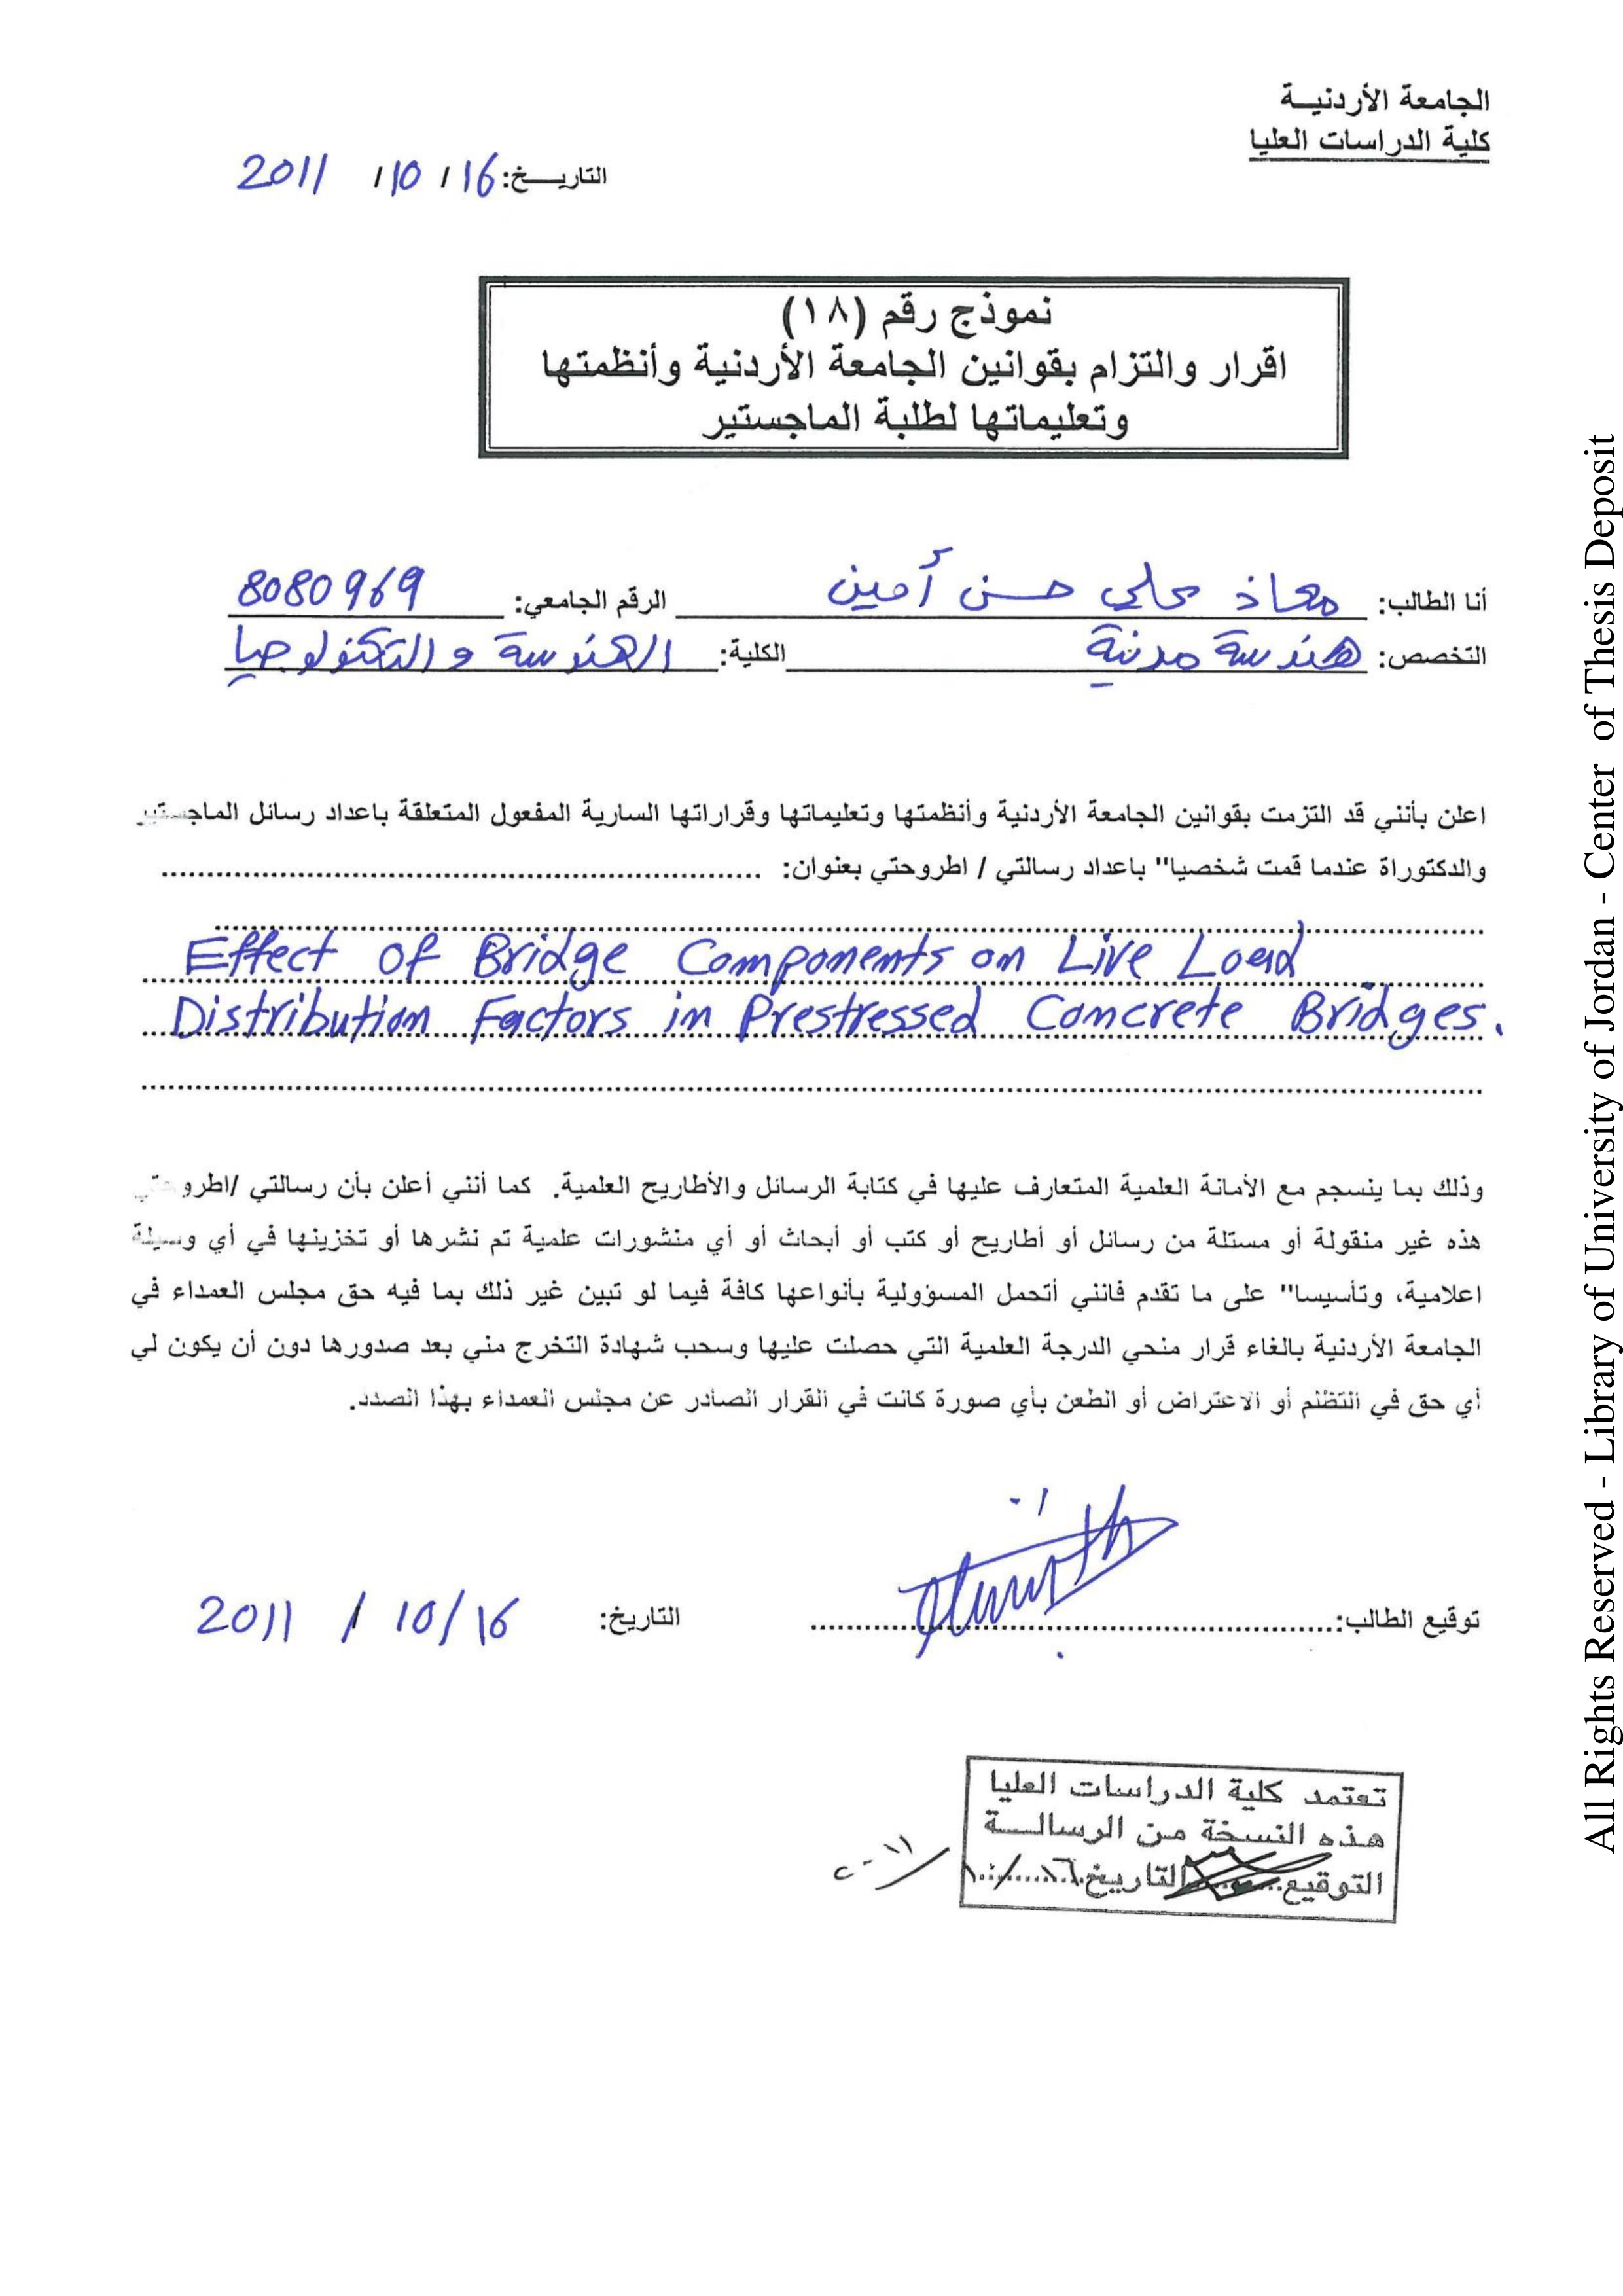 الجامعة الأردنيــة
كلية الدراسات العليا
التاريــخ: 16 / 10 / 2011
نموذج رقم (١٨)
اقرار والتزام بقوانين الجامعة الأردنية وأنظمتها
وتعليماتها لطلبة الماجستير
أنا الطالب: معاذ علي حسن أمين الرقم الجامعي: 8080969
التخصص: هندسة مدنية الكلية: الهندسة والتكنولوجيا
اعلن بأنني قد التزمت بقوانين الجامعة الأردنية وأنظمتها وتعليماتها وقراراتها السارية المفعول المتعلقة باعداد رسائل الماجستير
والدكتوراة عندما قمت شخصيا" باعداد رسالتي / اطروحتي بعنوان:
Effect of Bridge Components on Live Load
Distribution Factors in Prestressed Concrete Bridges.
وذلك بما ينسجم مع الأمانة العلمية المتعارف عليها في كتابة الرسائل والأطاريح العلمية. كما أنني أعلن بأن رسالتي /اطروحتي
هذه غير منقولة أو مستلة من رسائل أو أطاريح أو كتب أو أبحاث أو أي منشورات علمية تم نشرها أو تخزينها في أي وسيلة
اعلامية، وتأسيسا" على ما تقدم فانني أتحمل المسؤولية بأنواعها كافة فيما لو تبين غير ذلك بما فيه حق مجلس العمداء في
الجامعة الأردنية بالغاء قرار منحي الدرجة العلمية التي حصلت عليها وسحب شهادة التخرج مني بعد صدورها دون أن يكون لي
أي حق في التظلم أو الاعتراض أو الطعن بأي صورة كانت في القرار الصادر عن مجلس العمداء بهذا الصدد.
توقيع الطالب: التاريخ: 16 / 10 / 2011
تعتمد كلية الدراسات العليا
هذه النسخة من الرسالــة
التوقيع التاريخ ١٦/١٠/٢٠١١
All Rights Reserved - Library of University of Jordan - Center of Thesis Deposit